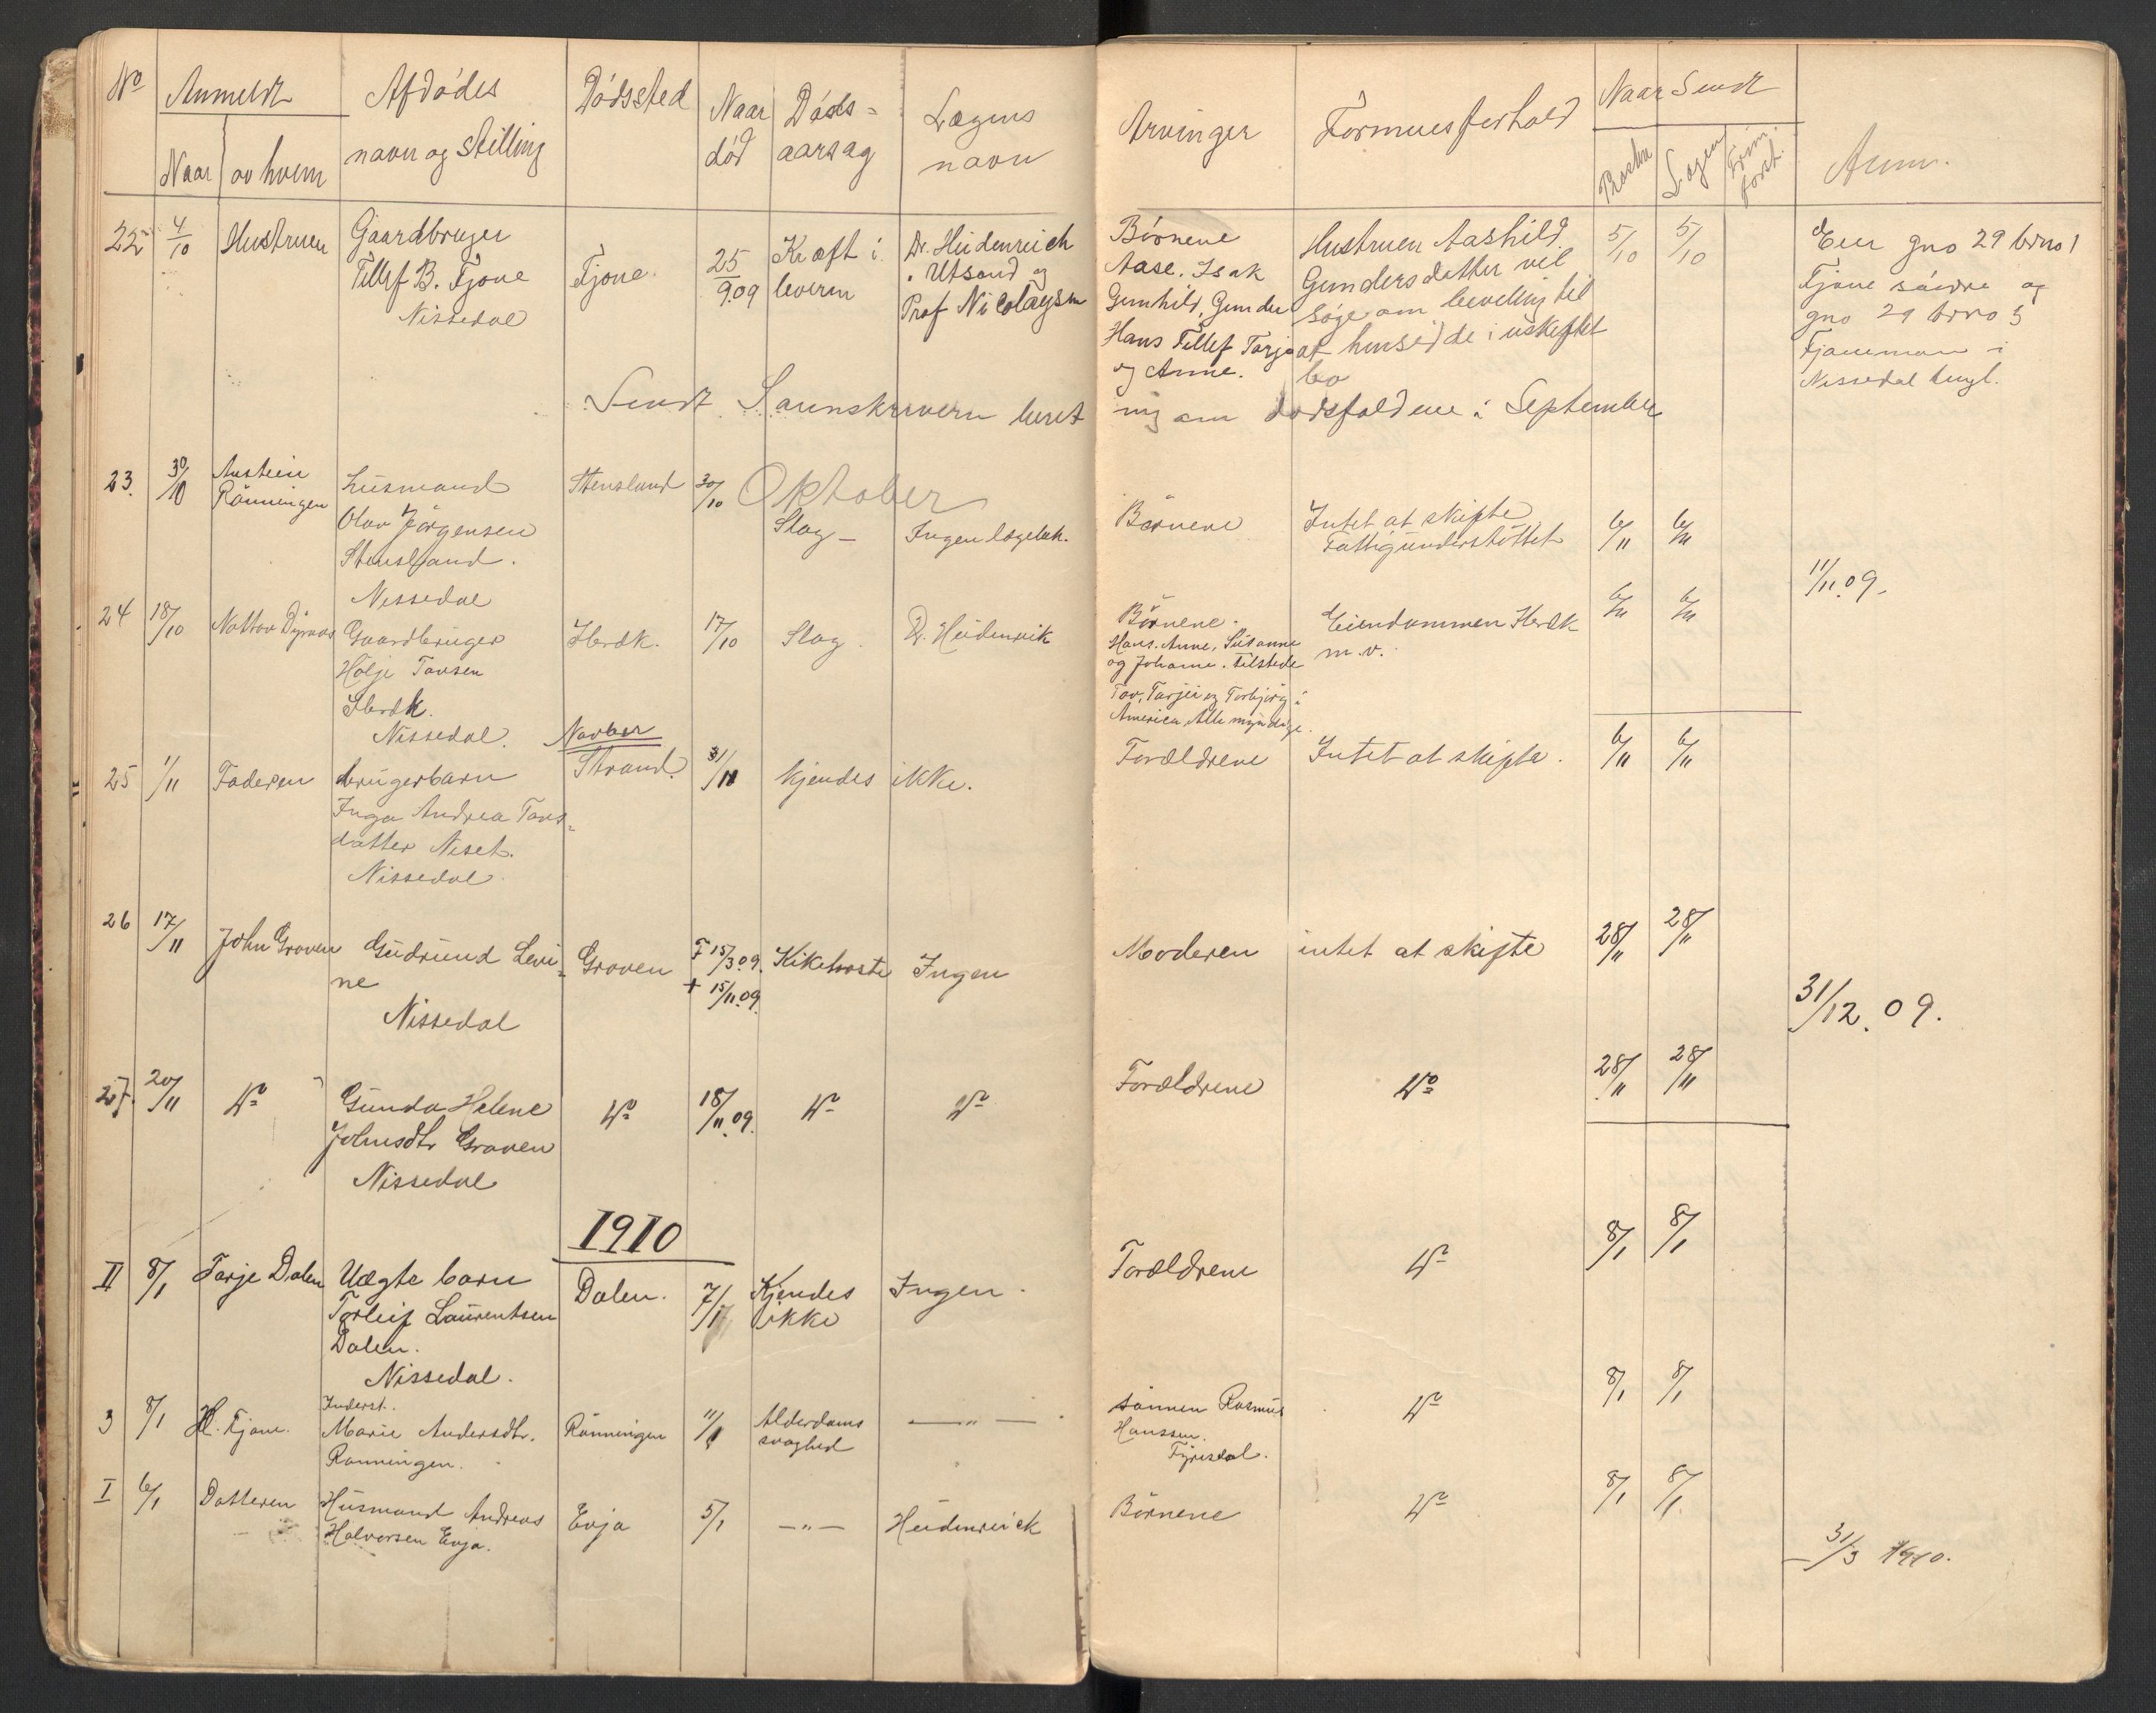 No Anmeldt Afdødes Dødssted Naar Døds= Lægens
Naar av hvem navn og Stilling død aarsag navn
Arvinger Formuesforhold Naar Sendt Anm.
Prosten Lægen
22 4/10 Hustruen Gaardbruger
Tellef B. Fjone Fjone 25/9.09 Kræft i leveren Dr. Heidenreich
Utsond og
Prof Nicolaysen
Nissedal
Børnene
Aase. Isak
Gunhild, Gunder
Hans Tellef Tarje
og Anne.
Hustruen Aashild
Gundersdatter vil
søge om beveling til
at hensidde i uskiftet
bo
5/10 5/10
Eier gno 29 brno 1
Fjone søndre og
gno 29 brno 5
Fjonemoen i
Nissedal tingl.
Sendt Sorenskriveren beret
ning om dødsfaldene i September
Oktober
23. 30/10 Austein
Rønningen
Husmand
Olav Jørgensen
Stensland.
Nissedal
Stensland 30/10 Slag – Ingen lægebeh.
Børnene Intet at skifte
Fattigunderstøttet
6/11 6/11
11/11.09.
24 18/10 Gaardbruger
Holje Tovsen
Nissedal.
17/10 Slag. D. Heidenreik
Børnene.
Hans. Anne, Susanne
og Johanne. tilstede
Tov, Tarjei og Torbjørg i
America Alle myndige.
Eiendommen
m.v.
6/11 6/11
Novber
25 1/11 Faderen brugerbarn
Inga Andrea Tovs=
datter Neset.
Nissedal.
Strand. 31/11 kjendes ikke.
Forældrene Intet at skifte.
6/11 6/11
26 17/11 John Groven Gudrund Levi=
ne
Nissedal
Groven F 15/3 09.
+ 15/11.09.
Kikhoste Ingen
Moderen intet at skifte
28/11 28/11
31/12.09.
27. 20/11 Do Gunda Helene
Johnsdtr Groven
Nissedal
Do 18/11.09. Do Do
Forældrene Do
28/11 28/11
1910
II 8/1 Tarje Dalen Uægte barn
Torleif Laurentsen
Dalen.
Nissedal.
Dalen. 7/1 Kjendes
ikke
Ingen.
Forældrene Do
8/1 8/1
3 8/1 H. Fjone. Inderst.
Marie Andersdtr.
Rønningen.
Rønningen 11/1 Alderdoms
svaghed
— " —
sønnen Rasmus
Hanssen.
Fyresdal.
Do
8/1 8/1
I 6/1 Datteren Husmand Andreas
Halvorsen Evja.
Evja 5/1 — " — Heidenreick
Børnene Do
8/1 8/1
31/3 1910.